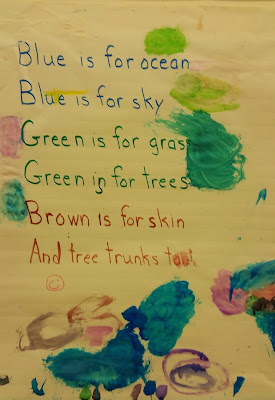 Blue is for ocean
Blue is for sky
Green is for grass
Green in for trees
Brown is for skin
And tree trunks too!